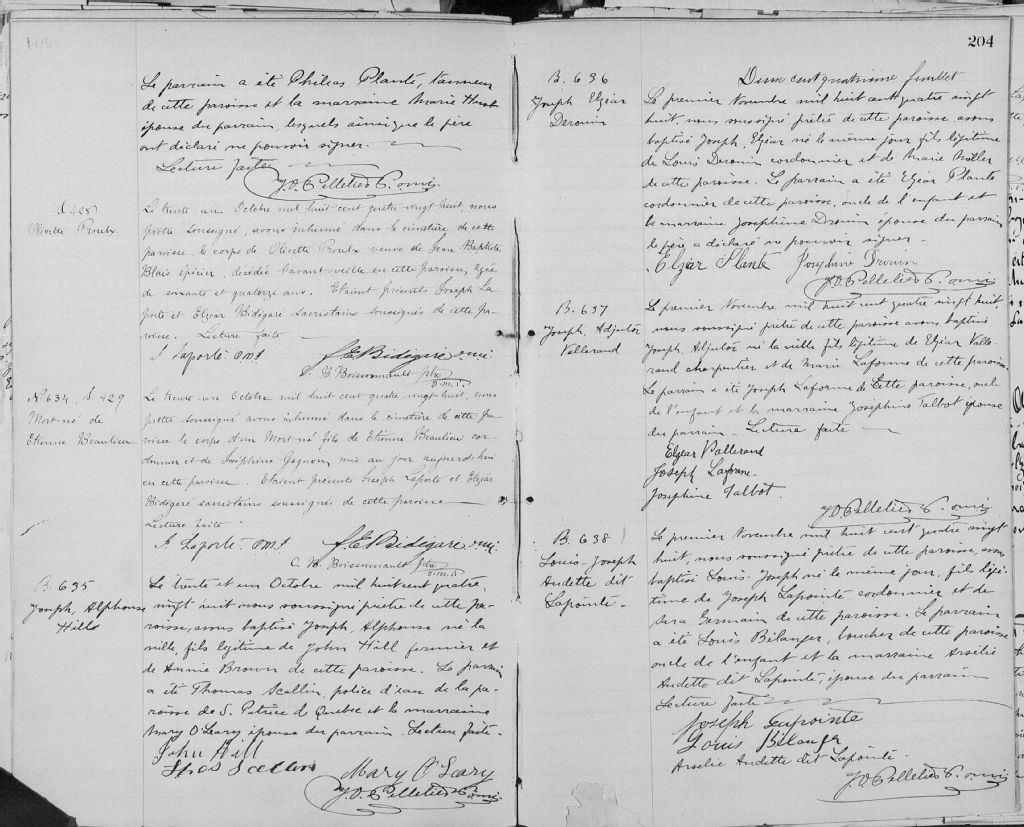 Le parrain a été Philéas Planté, tanneur
de cette paroisse et la marraine Marie
épouse du parrain, lesquels ainsi que le père
ont déclaré ne pouvoir signer.
Lecture faite
J. O. Pelletier P. omi.
S 428
Olivette Proulx
Le trente un Octobre mil huit cent quatre vingt huit, nous
prêtre soussigné, avons inhumé dans le cimetière de cette
paroisse le corps de Olivette Proulx veuve de Jean Baptiste
Blais épicier, décédée l'avant veille en cette Paroisse, agée
de soixante et quatorze ans. Etaient présents Joseph La
porte et Elzear Bidégaré sacristains soussignés de cette Pa-
roisse. Lecture faite
J Laporte. O.M.I. f. E. Bidégaré o.m.i.
C. B. Boissonnault ptre
o.m.i.
N. 634. S 429
Mort-né de
Etienne Beaulieu
Le trente un Octobre mil huit cent quatre vingt huit, nous
prêtre soussigné avons inhumé dans le cimetière de cette Pa-
roisse le corps d'un Mort né fils de Etienne Beaulieu cor-
donnier et de Joséphine Gagnon, mis au jour aujourd'hui
en cette paroisse. Etaient présents Joseph Laporte et Elzéar
Bidégaré sacristains soussignés de cette paroisse
Lecture faite.
J. Laporté. O.M.I f. E. Bidégaré omi
C. B. Boissonnault ptre
o.m.i.
B. 635
Joseph, Alphonse
Hills
Le trente et un Octobre mil huit cent quatre
vingt huit nous soussigné prêtre de cette pa-
roisse, avons baptisé Joseph, Alphonse né la
veille, fils légitime de John Hill fermier et
de Annie Brown de cette paroisse. Le parrain
a été Thomas Scallin, police d'eau de la pa-
roisse de S. Patrice de Quebec et la marraine
Mary O'Leary épouse du parrain. Lecture faite.
John Hill
Thos Scallin
Mary O'Leary
J. O. Pelletier P. omi.
204
B. 636
Joseph Elzéar
Derouin
Deux cent quatrième feuillet
Le premier Novembre mil huit cent quatre vingt
huit, nous soussigné prêtre de cette paroisse avons
baptisé Joseph, Elzéar né le même jour fils légitime
de Louis Derouin cordonnier et de Marie
de cette paroisse. Le parrain a été Elzéar Planté
cordonnier de cette paroisse, oncle de l'enfant et
la marraine Josephine Drouin épouse du parrain
le père a déclaré ne pouvoir signer.
Elzear Planté Josephine Drouin
J. O. Pelletier P. omi
B. 637
Joseph, Adjutor
Vallerand
Le premier Novembre mil huit cent quatre vingt huit,
nous soussigné prêtre de cette paroisse avons baptisé
Joseph, Adjutor né la veille fils légitime de Elzéar Valle-
rand charpentier et de Marie Laforme de cette paroisse.
Le parrain a été Joseph Laforme de cette paroisse, oncle
de l'enfant et la marraine Joséphine Talbot épouse
du parrain - Lecture faite
Elzéar Vallerand
Joseph Laforme.
Josephine Talbot.
J. O. Pelletier P. omi
B. 638
Louis-Joseph
Audette dit
Lapointe.
Le premier Novembre mil huit cent quatre vingt
huit, nous soussigné prêtre de cette paroisse, avons
baptisé Louis-Joseph né le même jour, fils légi-
time de Joseph Lapointe cordonnier et de
Sara Germain de cette paroisse. Le parrain
a été Louis Bélanger, boucher de cette paroisse
oncle de l'enfant et la marraine Arsélie
Audette dit Lapointe, épouse du parrain
Lecture faite
Joseph Lapointe
Louis Bélanger
Arselie Audette dit Lapointe.
J. O. Pelletier P. omi